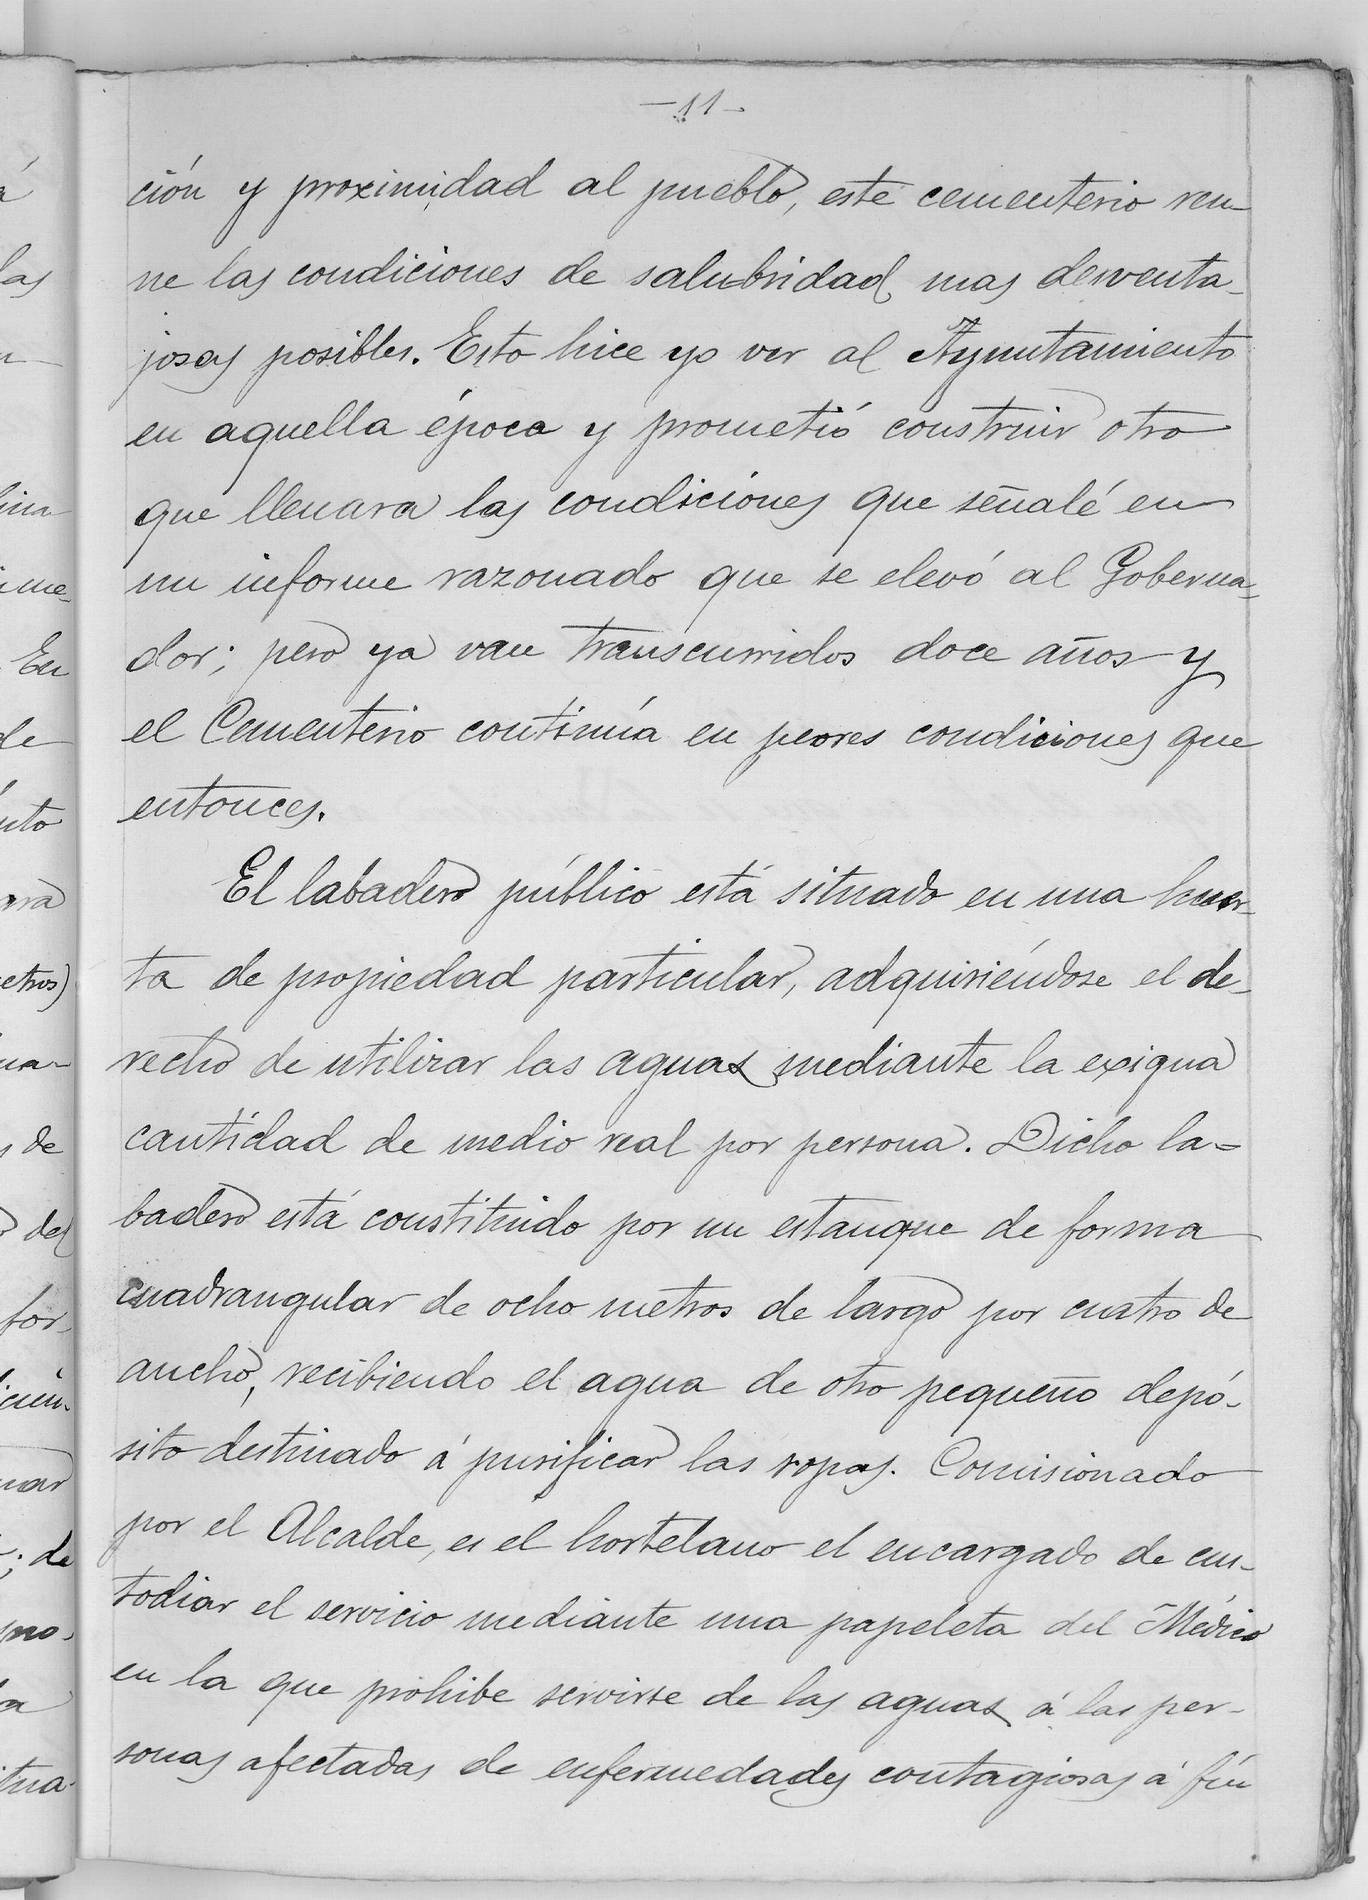 -11-
ción y proximidad al pueblo, este cementerio reu-
ne las condiciones de salubridad mas desventa-
josas posibles. Esto hice yo ver al Ayuntamiento
en aquella época y prometió construir otro
que llenara las condiciones que señalé en
un informe razonado que se elevó al Goberna-
dor; pero ya van transcurridos doce años y
el Cementerio continúa en peores condiciones que
entonces.
El labadero público está situado en una huer-
ta de propiedad particular, adquiriéndose el de-
recho de utilizar las aguas mediante la exigua
cantidad de medio real por persona. Dicho la=
badero está constituido por un estanque de forma
cuadrangular de ocho metros de largo por cuatro de
ancho, recibiendo el agua de otro pequeño depó-
sito destinado á purificar las ropas. Comisionado
por el Alcalde, es el hortelano el encargado de cus-
todiar el servicio mediante una papeleta del Médico
en la que prohibe servirse de las aguas á las per-
sonas afectadas de enfermedades contagiosas á fin